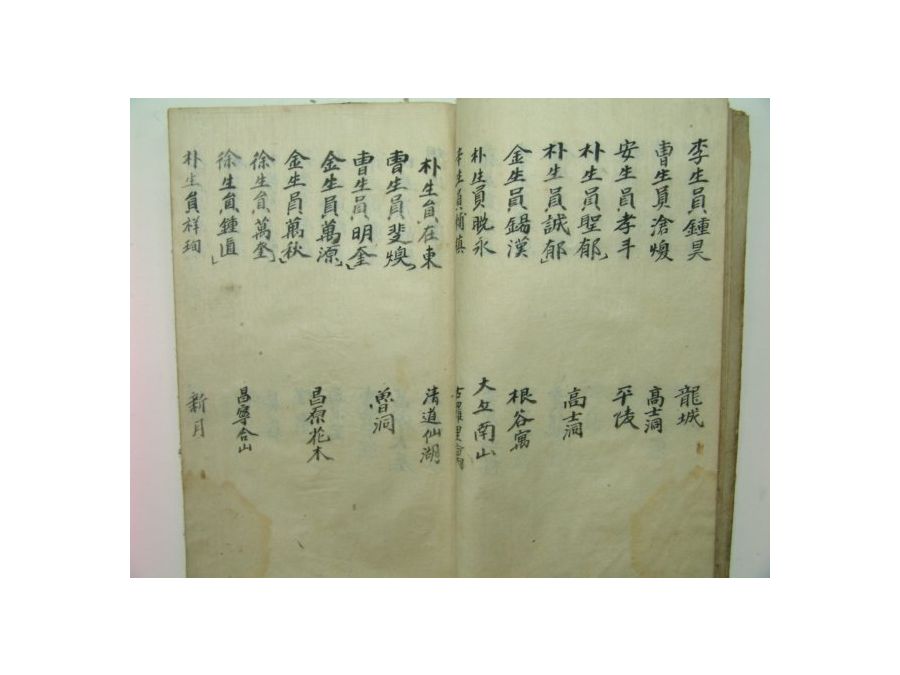 李生員鍾昊 龍城
曺生員滄煥 髙士洞
安生員孝斗 平陵
朴生員聖郁
朴生員誠郁 高士洞
金生員錫漢 根谷寓
朴生員晩永 大丘南山
生員 古
朴生員在東 清道仙湖
曺生員斐煥
曺生員明奎 魯洞
金生員萬源
金生員萬秋 昌原花木
徐生員萬奎
徐生員鍾直 昌寧合山
朴生員祥珣 新月